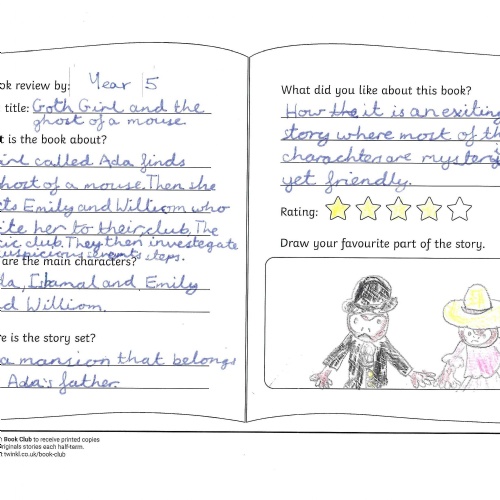 ok review by: Year 5
title: Goth Girl and the
ghost of a mouse.
t is the book about?
irl called Ada finds
host of a mouse. Then she
ts Emily and William who
ite her to their club. The
ic club. They then investegate
uspicious events steps.
are the main characters?
da, Ishmal and, Emily
d William.
re is the story set?
a mansion that belongs
Ada's father.
Book Club to receive printed copies
riginals stories each half-term.
twinkl.co.uk/book-club
What did you like about this book?
How the it is an exiting
story where most of th
charachters are mysteri
yet friendly.
Rating:
Draw your favourite part of the story.